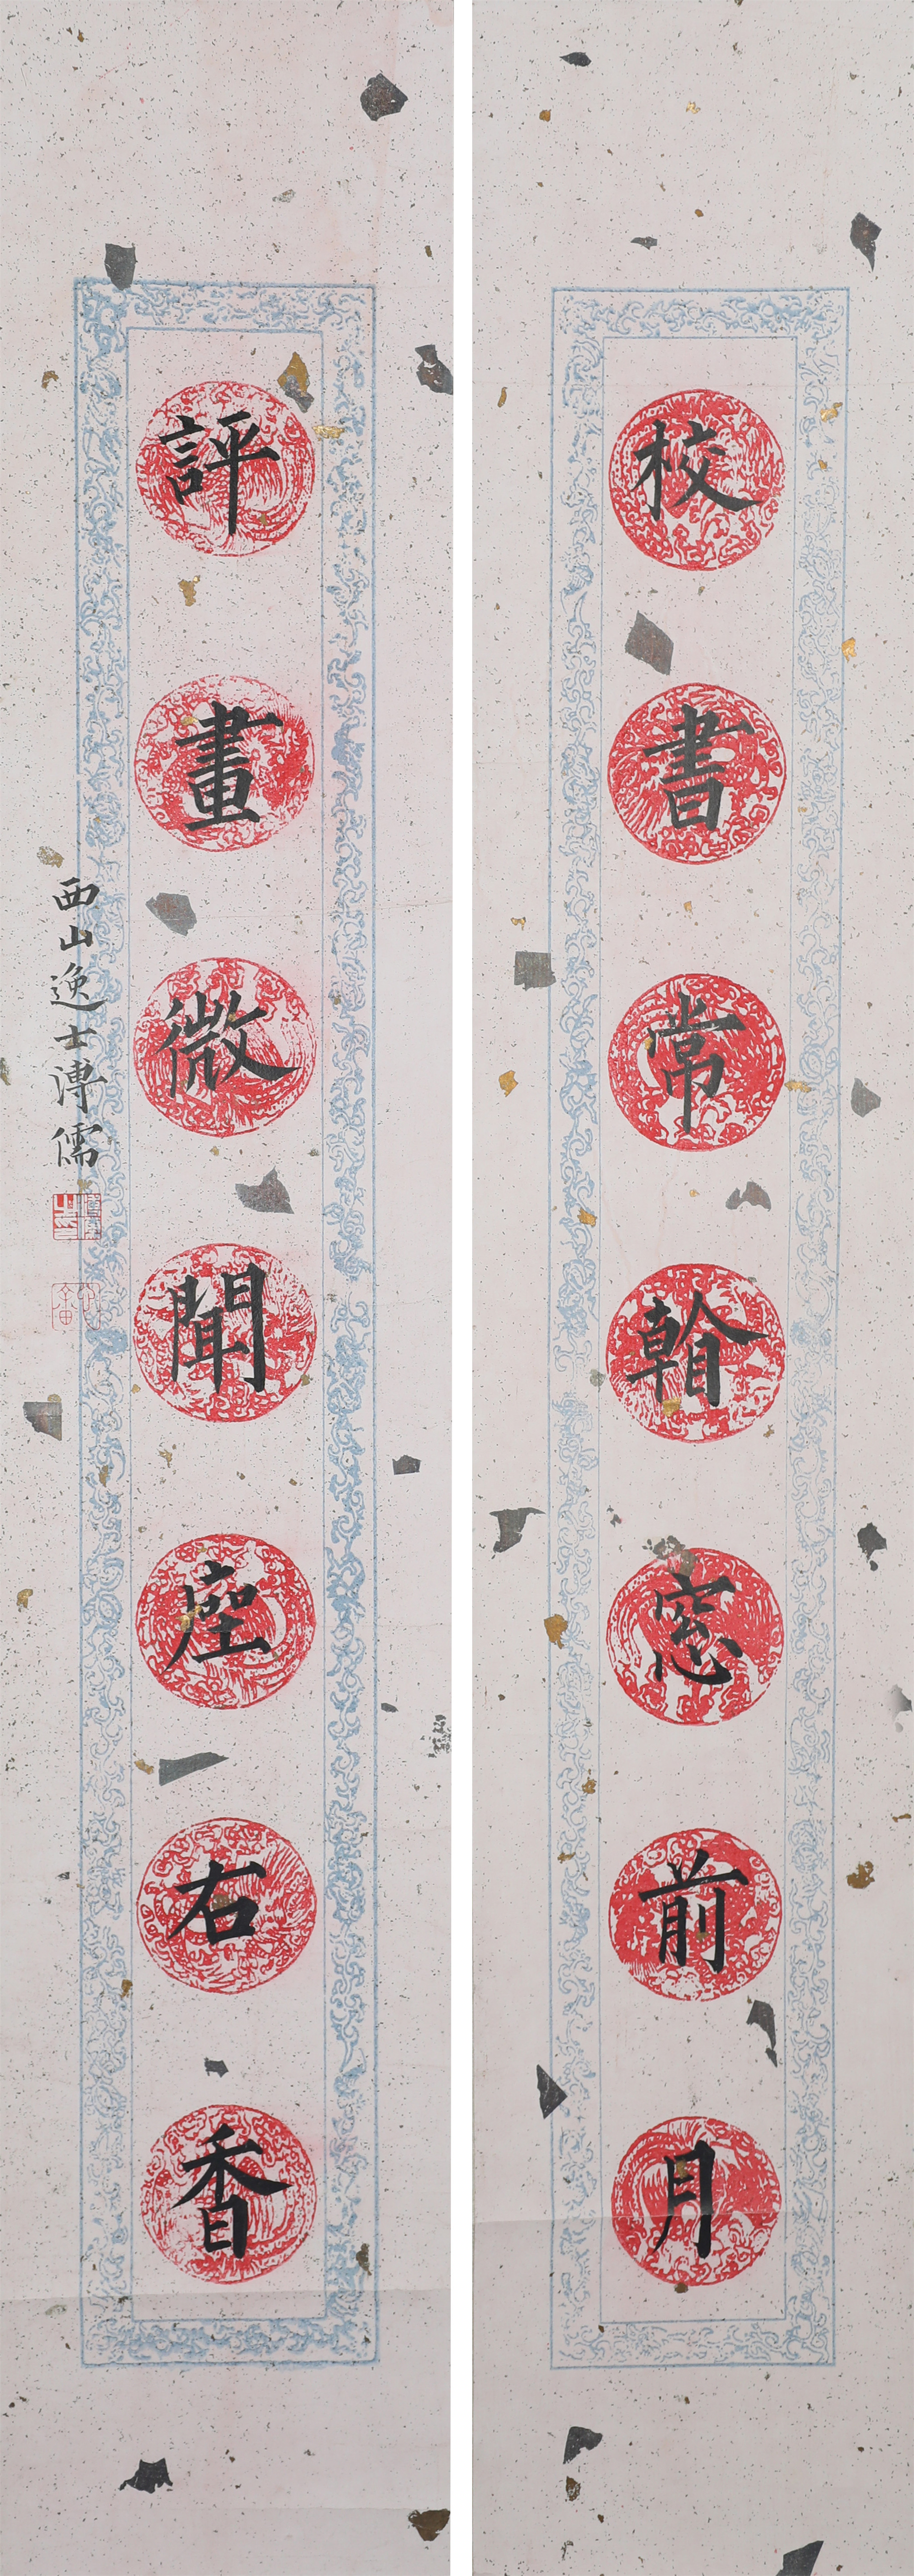 校書常窓前月
評畫微聞座右香
西山逸士溥儒
心畬